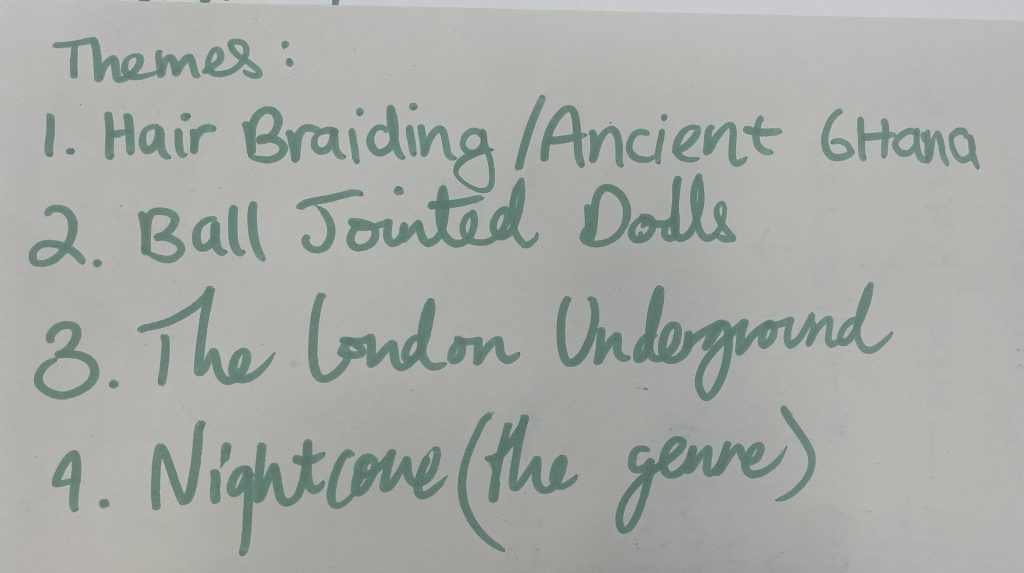 Themes:
1. Hair Braiding/Ancient GHana
2. Ball Jointed Dolls
3. The London Underground
4. Nightcore (the genre)